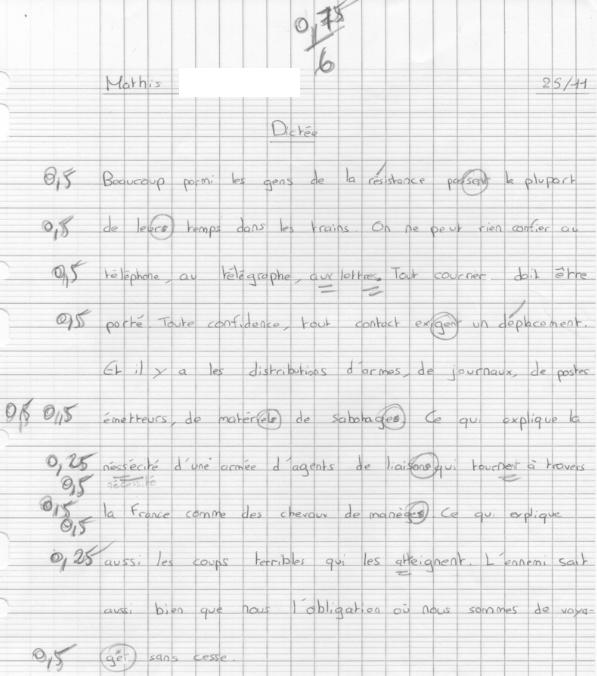 0,75
6
Mathis 25/11
Dictée
0,5 Beaucoup parmi les gens de la résistance passent la plupart
0,5 de leurs temps dans les trains. On ne peut rien confier au
0,5 téléphone, au télégraphe, aux lettres. Tout courrier doit être
0,5 porté. Toute confidence, tout contact exigent un déplacement.
Et il y a les distributions d'armes, de journaux, de postes
0,5 0,5 émetteurs, de matériels de sabotages. Ce qui explique la
0,25 néssécité d'une armée d'agents de liaisons qui tourner à travers
0,5 nécessité
0,5 la France comme des chevaux de manèges. Ce qui explique
0,5
0,25 aussi les coups terribles qui les atteignent. L'ennemi sait
aussi bien que nous l'obligation où nous sommes de voya-
0,5 ger sans cesse.